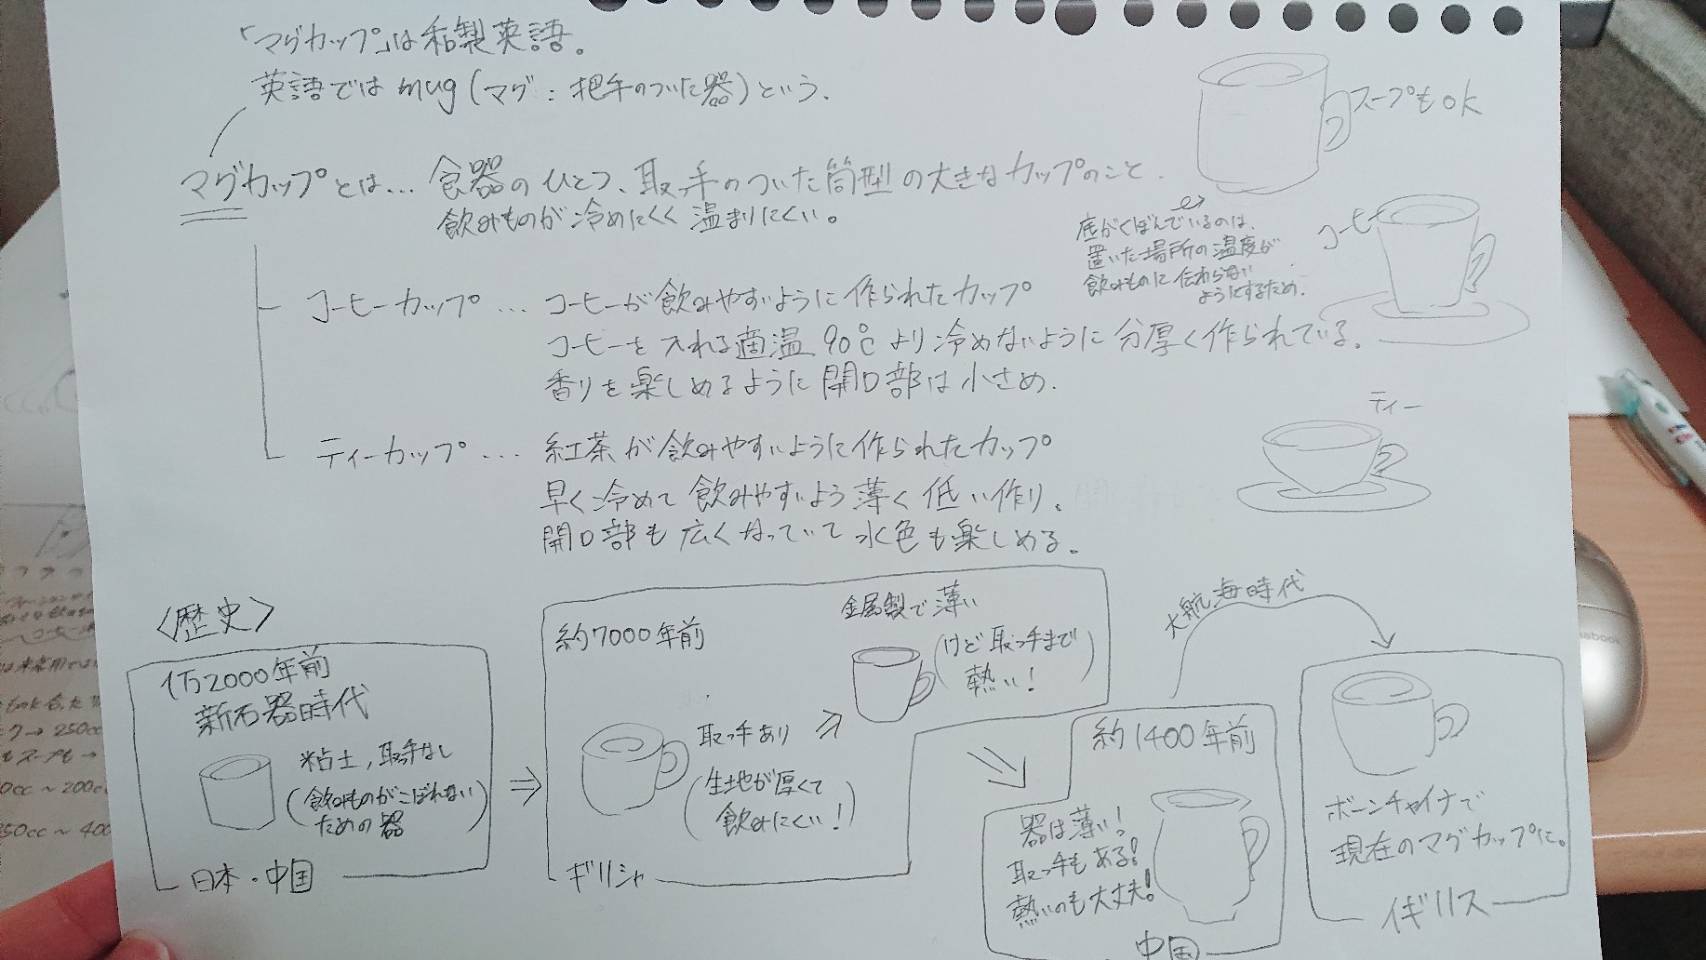 「マグカップ」は和製英語。
英語ではmug(マグ:把手のついた器)という。
スープもOK
マグカップとは… 食器のひとつ、取っ手のついた筒型の大きなカップのこと。
飲みものが冷めにくく温まりにくい。
底がくぼんでいるのは、
置いた場所の温度が
飲みものに伝わらない
ようにするため。
コーヒー
コーヒーカップ … コーヒーが飲みやすいように作られたカップ
コーヒーを入れる適温90℃より冷めないように分厚く作られている。
香りを楽しめるように開口部は小さめ。
ティー
ティーカップ … 紅茶が飲みやすいように作られたカップ
早く冷めて飲みやすいよう薄く低い作り。
開口部も広くなっていて水色も楽しめる。
<歴史>
1万2000年前
新石器時代
粘土,取手なし
(飲みものがこぼれない
ための器)
日本・中国
⇒
約7000年前
取っ手あり
(生地が厚くて
飲みにくい!)
⇒
金属製で薄い
(けど取っ手まで
熱い!)
ギリシャ
約1400年前
器は薄い!
取っ手もある!
熱いのも大丈夫!
中国
大航海時代
ボーンチャイナで
現在のマグカップに。
イギリス
→250cc
スープも→
0cc〜200c
50cc〜400